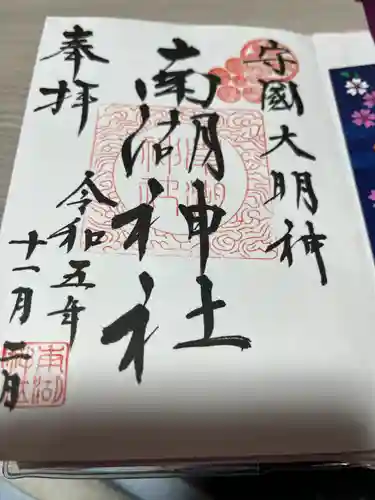 守國大明神
南湖神社
奉拝
令和五年
十一月二日
南湖神社